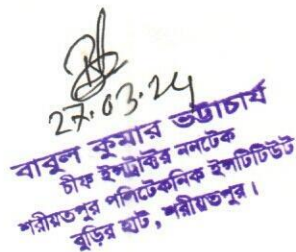 27.03.24
বাবুল কুমার ভট্টাচার্য
চীফ ইন্সট্রাক্টর ননটেক
শরীয়তপুর পলিটেকনিক ইন্সটিটিউট
বুড়ির হাট, শরীয়তপুর।